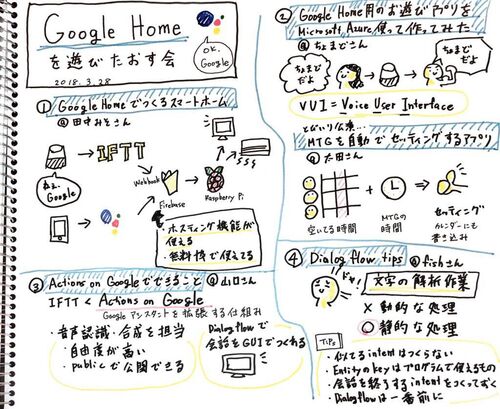 Google Home
を遊びたおす会
2018.3.28
OK, Google
① Google Homeでつくるスマートホーム
@田中みそさん
IFTT
ねぇ、Google
Webhook
Firebase
Raspberry Pi
・ホスティング機能が使える
・無料枠で使えてる
② Google Home用のお遊びアプリを
Microsoft Azure使って作ってみた
@ちょまどさん
ちょまどだよ
ちょまどだよ
VUI = Voice User Interface
とびいり伝楽…
MTGを自動でセッティングするアプリ
@太田さん
空いてる時間
+
MTGの時間
→
セッティング
カレンダーにも書き込み
③ Actions on Googleでできること @山口さん
IFTT < Actions on Google
Googleアシスタントを拡張する仕組み
・音声認識・合成を担当
・自由度が高い
・publicで公開できる
Dialogflowで
会話をGUIでつくれる
④ Dialog flow tips @fishさん
ドヤ!
文字の解析作業
× 動的な処理
○ 静的な処理
TIPS
・似てるintentはつくらない
・Entityのkeyはプログラムで使えるもの
・会話を終了するintentをつくっておく
・Dialogflowは一番前に